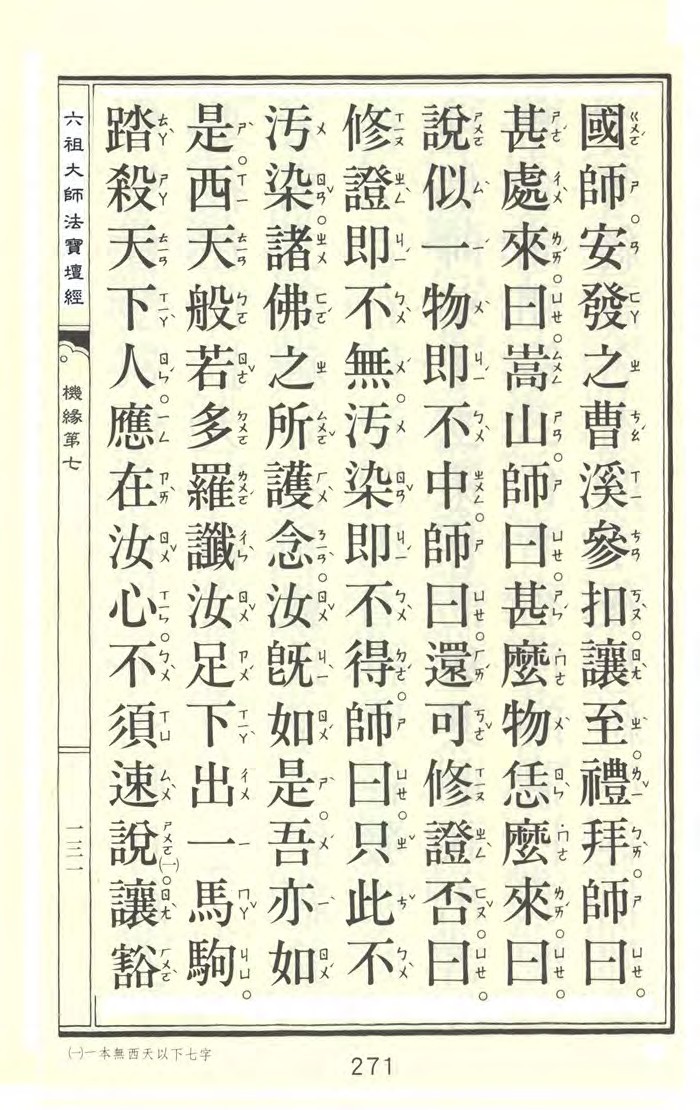 國師。安發之曹溪參扣。讓至。禮拜。師曰。
甚處來。曰。嵩山。師曰。甚麼物恁麼來。曰。
說似一物即不中。師曰。還可修證否。曰。
修證即不無。污染即不得。師曰。只此不
污染。諸佛之所護念。汝既如是。吾亦如
是。西天般若多羅讖汝足下出一馬駒。
踏殺天下人。應在汝心。不須速說㈠。讓豁
六祖大師法寶壇經
機緣第七
一三一
㈠一本無西天以下七字
271